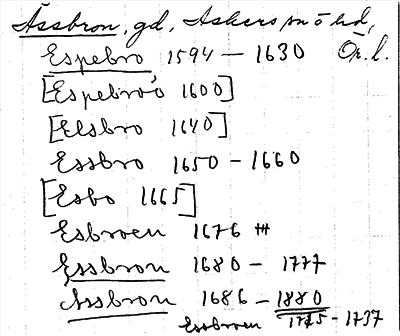 Assbron, gd, Askers sn ö hd, Ör. l.
Espebro 1594 – 1630
[Espebroo 1600]
[Elsbro 1640]
Essbro 1650 – 1660
[Esbo 1665]
Esbroen 1676 ᚏ
Essbron 1680 – 1777
Assbron 1686 – 1880
Essbroen 1725 – 1737